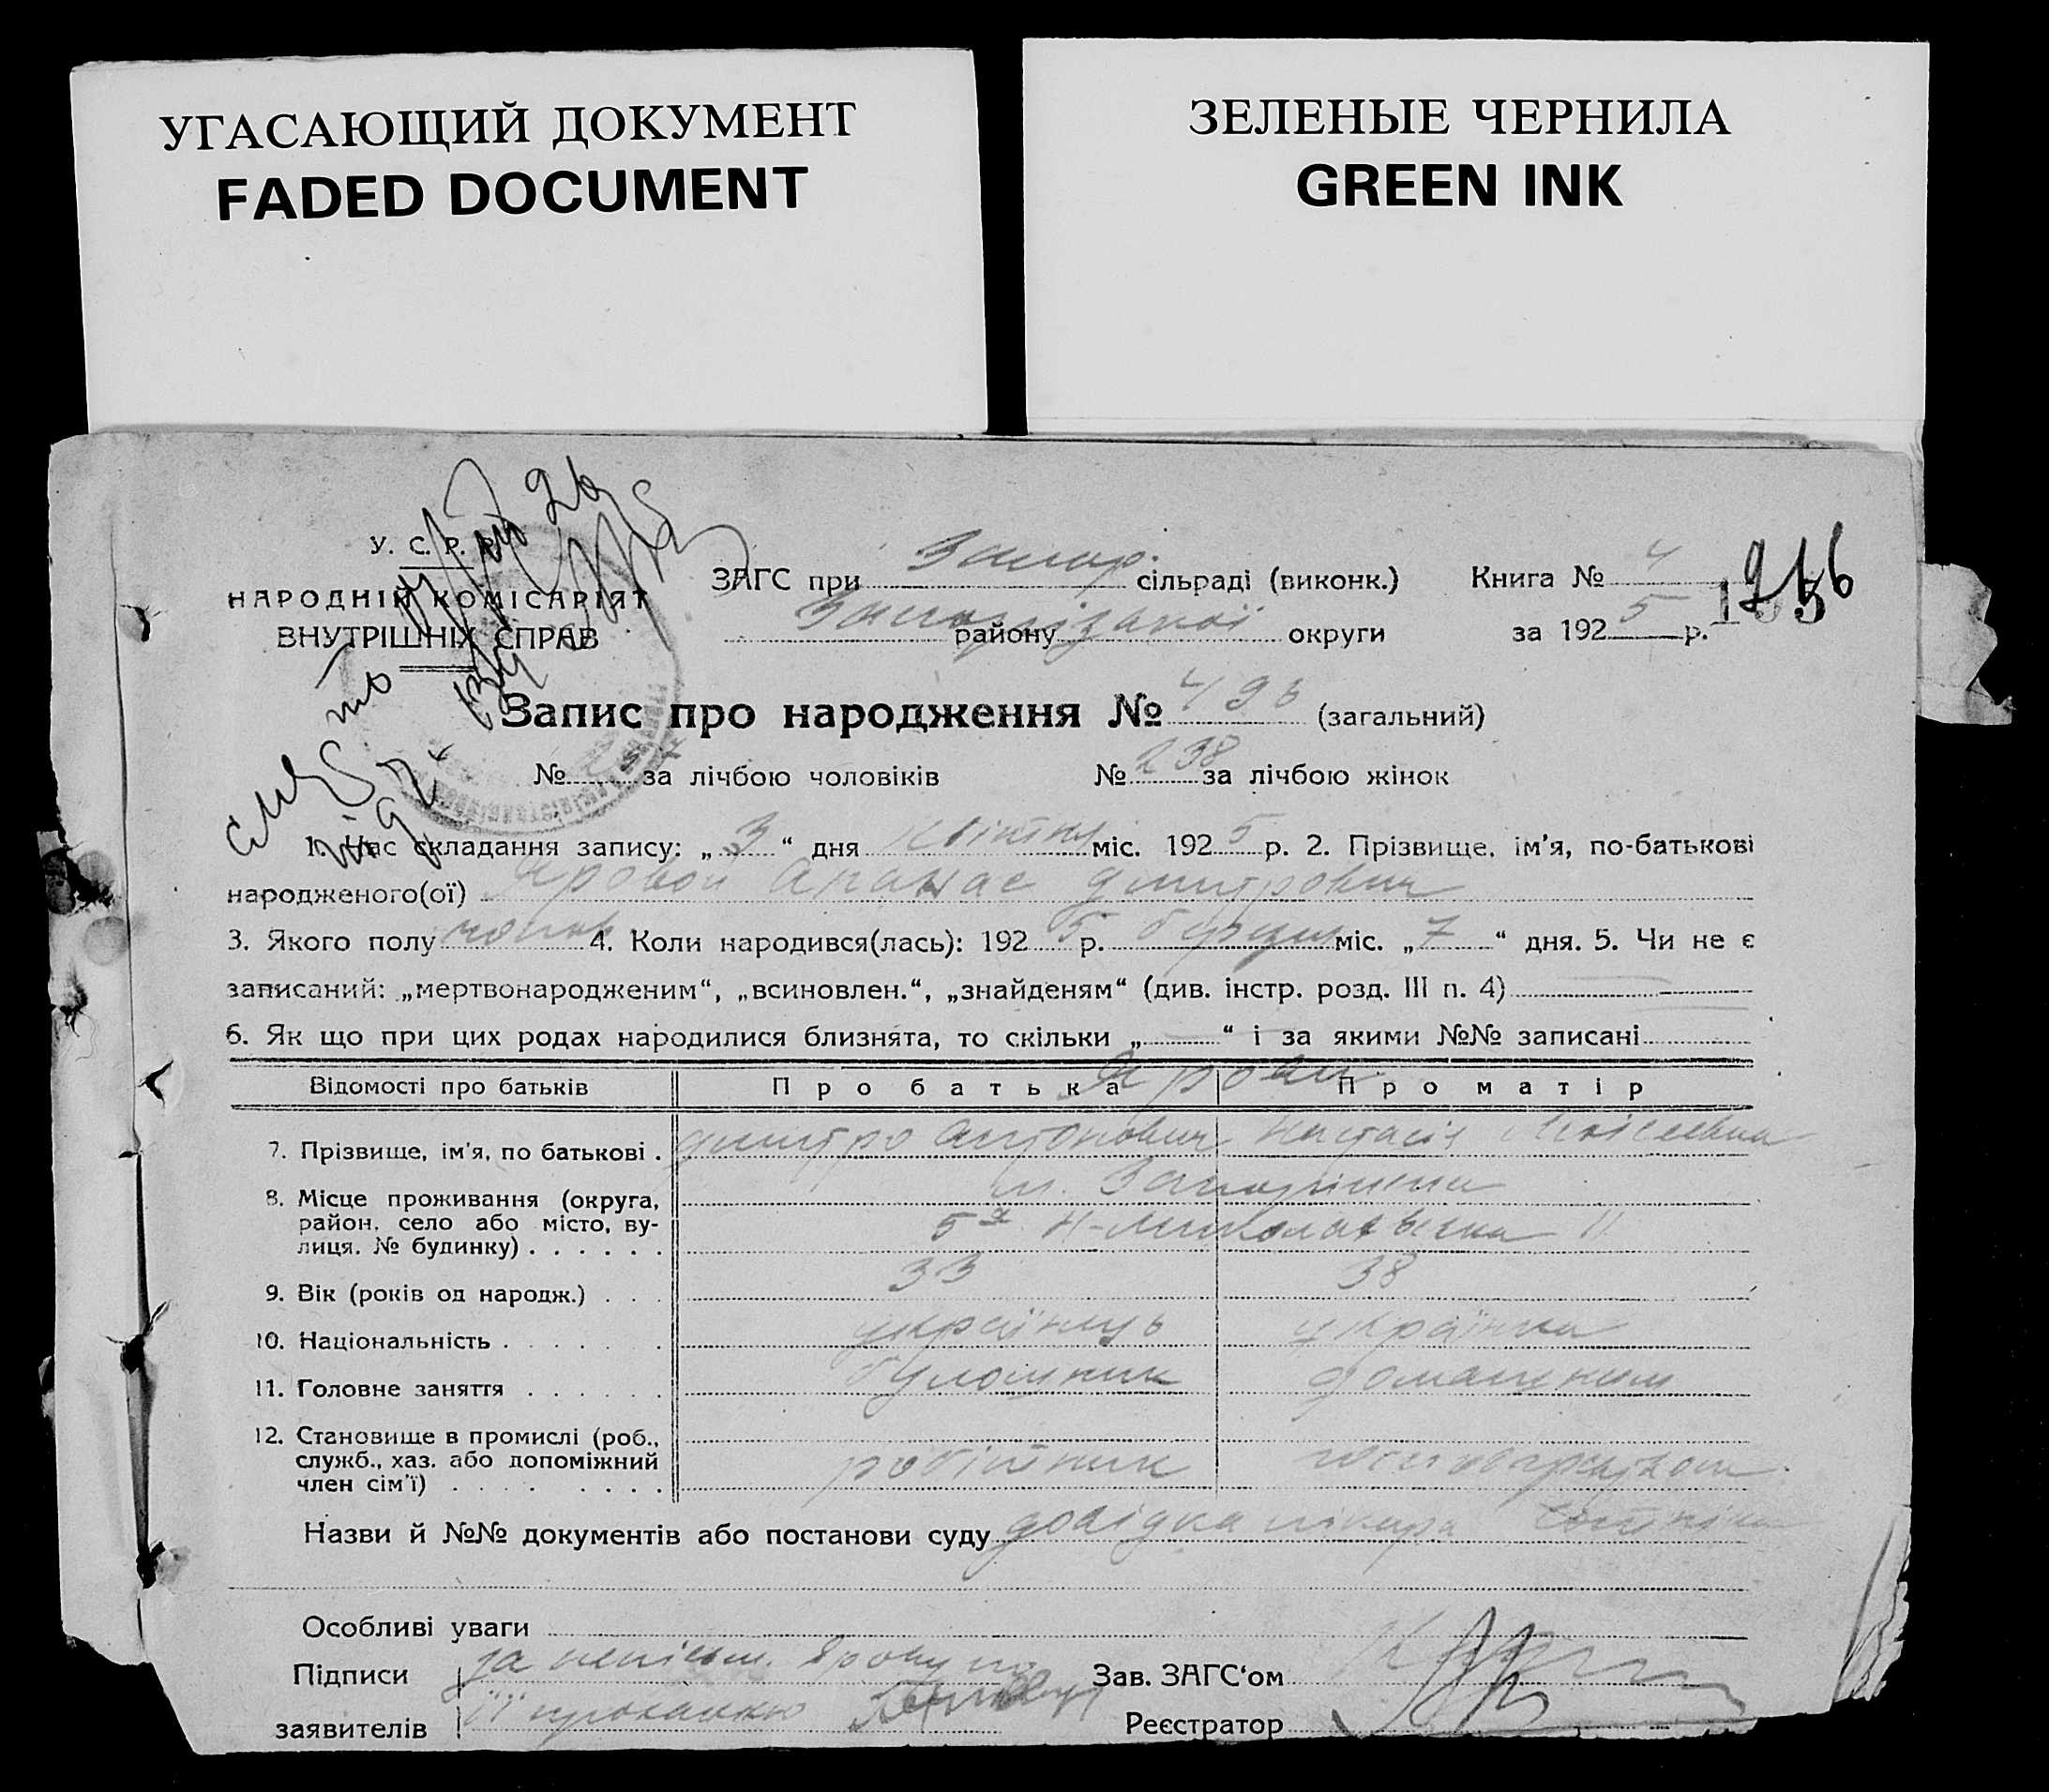 УГАСАЮЩИЙ ДОКУМЕНТ
FADED DOCUMENT
ЗЕЛЕНЫЕ ЧЕРНИЛА
GREEN INK
У. С. Р. Р.
НАРОДНІЙ КОМІСАРІЯТ
ВНУТРІШНІХ СПРАВ
ЗАГС при Запор. сільраді (виконк.)
району Запорізької округи
Книга № 4
за 1925 р.
Запис про народження № 496 (загальний)
№ 257 за лічбою чоловіків № 238 за лічбою жінок
1. Час складання запису: „3“ дня квітня міс. 1925 р. 2. Прізвище, ім'я, по-батькові
народженого(ої) Яровой Апанас Дмитрович
3. Якого полу чолов 4. Коли народився(лась): 1925 р. березня міс. „7“ дня. 5. Чи не є
записаний: „мертвонародженим“, „всиновлен.“, „знайденям“ (див. інстр. розд. III п. 4)
6. Як що при цих родах народилися близнята, то скільки „—“ і за якими №№ записані
Відомості про батьків Про батька Про матір
Ярови
7. Прізвище, ім'я, по батькові . Дмитро Антонович Настасія Мойсеєвна
8. Місце проживання (округа, м. Запоріжжя
район, село або місто, ву-
лиця, № будинку) . . . . . . 5а Н-Миколаевська 11
9. Вік (років од народж.) . . . 33 38
10. Національність . . . . . . . українець українка
11. Головне заняття . . . . . . булошник домашним
12. Становище в промислі (роб.,
служб., хаз. або допоміжний
член сім'ї) . . . . . . . . робітник господарством
Назви й №№ документів або постанови суду довідка лікаря
Особливі уваги
Підписи за неписьм. Ярову по
заявителів її проханню
Зав. ЗАГС'ом
Реєстратор